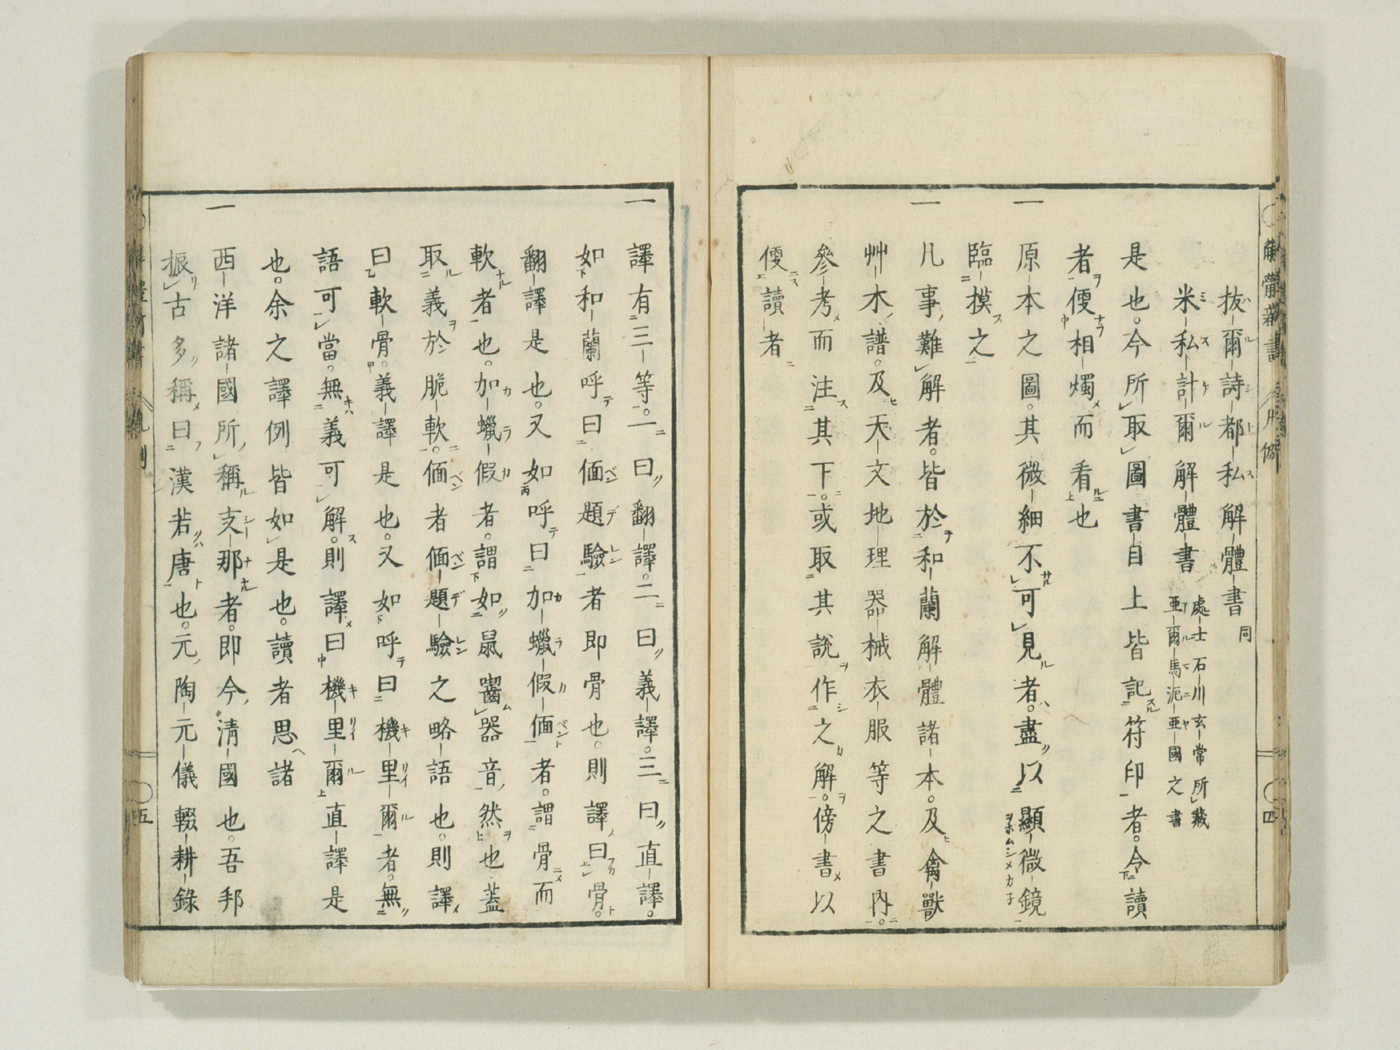 拔爾詩都私解體書同
米私計爾解體書 處士石川玄常所藏
亜爾馬泥亜國之書
是也。今所取圖書目上皆記符印者。今讀
者便相燭而看也
一 原本之圖。其微細不可見者。盡以顯微鏡
臨模之
一 凡事難解者。皆於和蘭解體諸本。及禽獸
艸木譜。及天文地理器械衣服等之書內。
參考而注其下。或取其說作之解。傍書以
便讀者
一 譯有三等。一曰翻譯。二曰義譯。三曰直譯。
如和蘭呼曰偭題驗者即骨也。則譯曰骨。
翻譯是也。又如呼曰加蠟假偭者。謂骨而
軟者也。加蠟假者。謂如鼠嚙器音然也蓋
取義於脆軟。偭者偭題驗之略語也。則譯
曰軟骨。義譯是也。又如呼曰機里爾者。無
語可當。無義可解。則譯曰機里爾直譯是
也。余之譯例皆如是也。讀者思諸
一 西洋諸國所稱支那者。即今清國也。吾邦
振古多稱曰漢若唐也。元陶元儀輟耕錄
解體新書
凡例
四
五